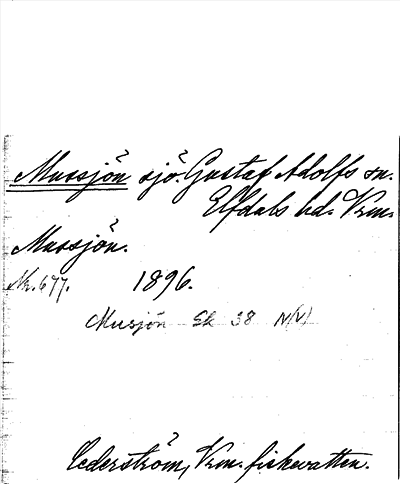 Mussjön sjö. Gustaf Adolfs sn.
Elfdals hd. Vrm.
Mussjön.
Nr. 677. 1896.
Musjön Ek 38 N(V)
Cederström, Vrm. fiskevatten.